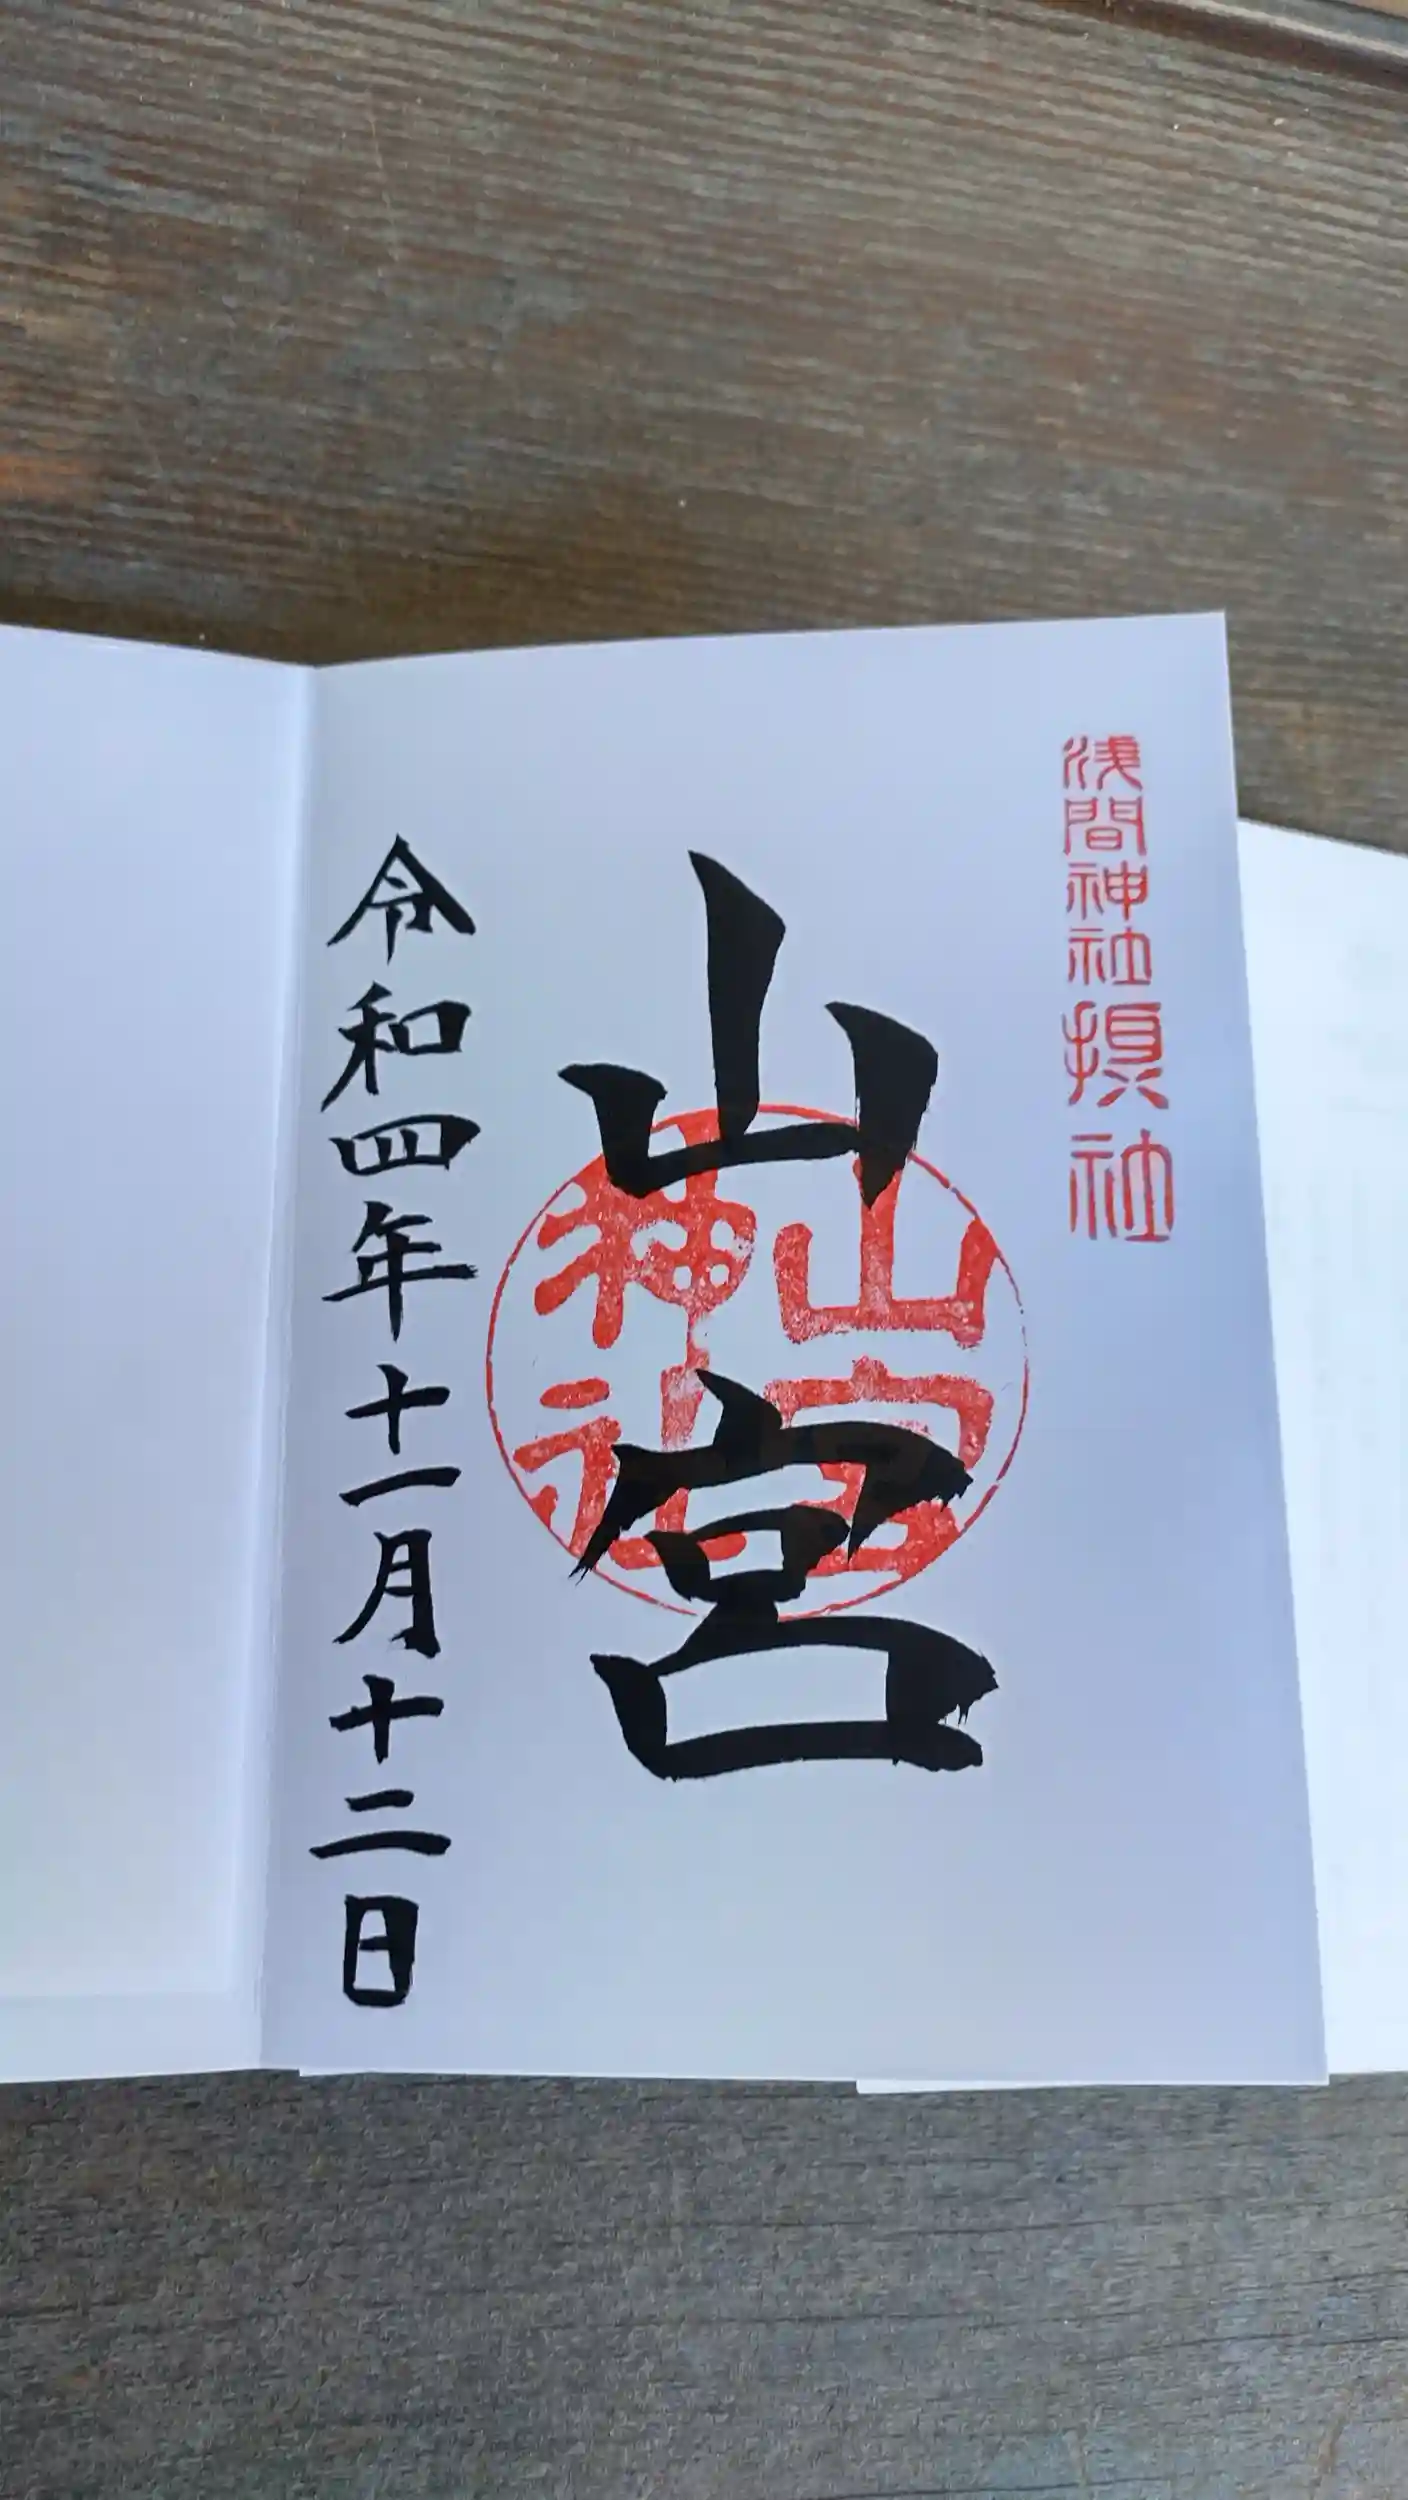 浅間神社摂社
山宮
山宮
神社
令和四年十一月十二日